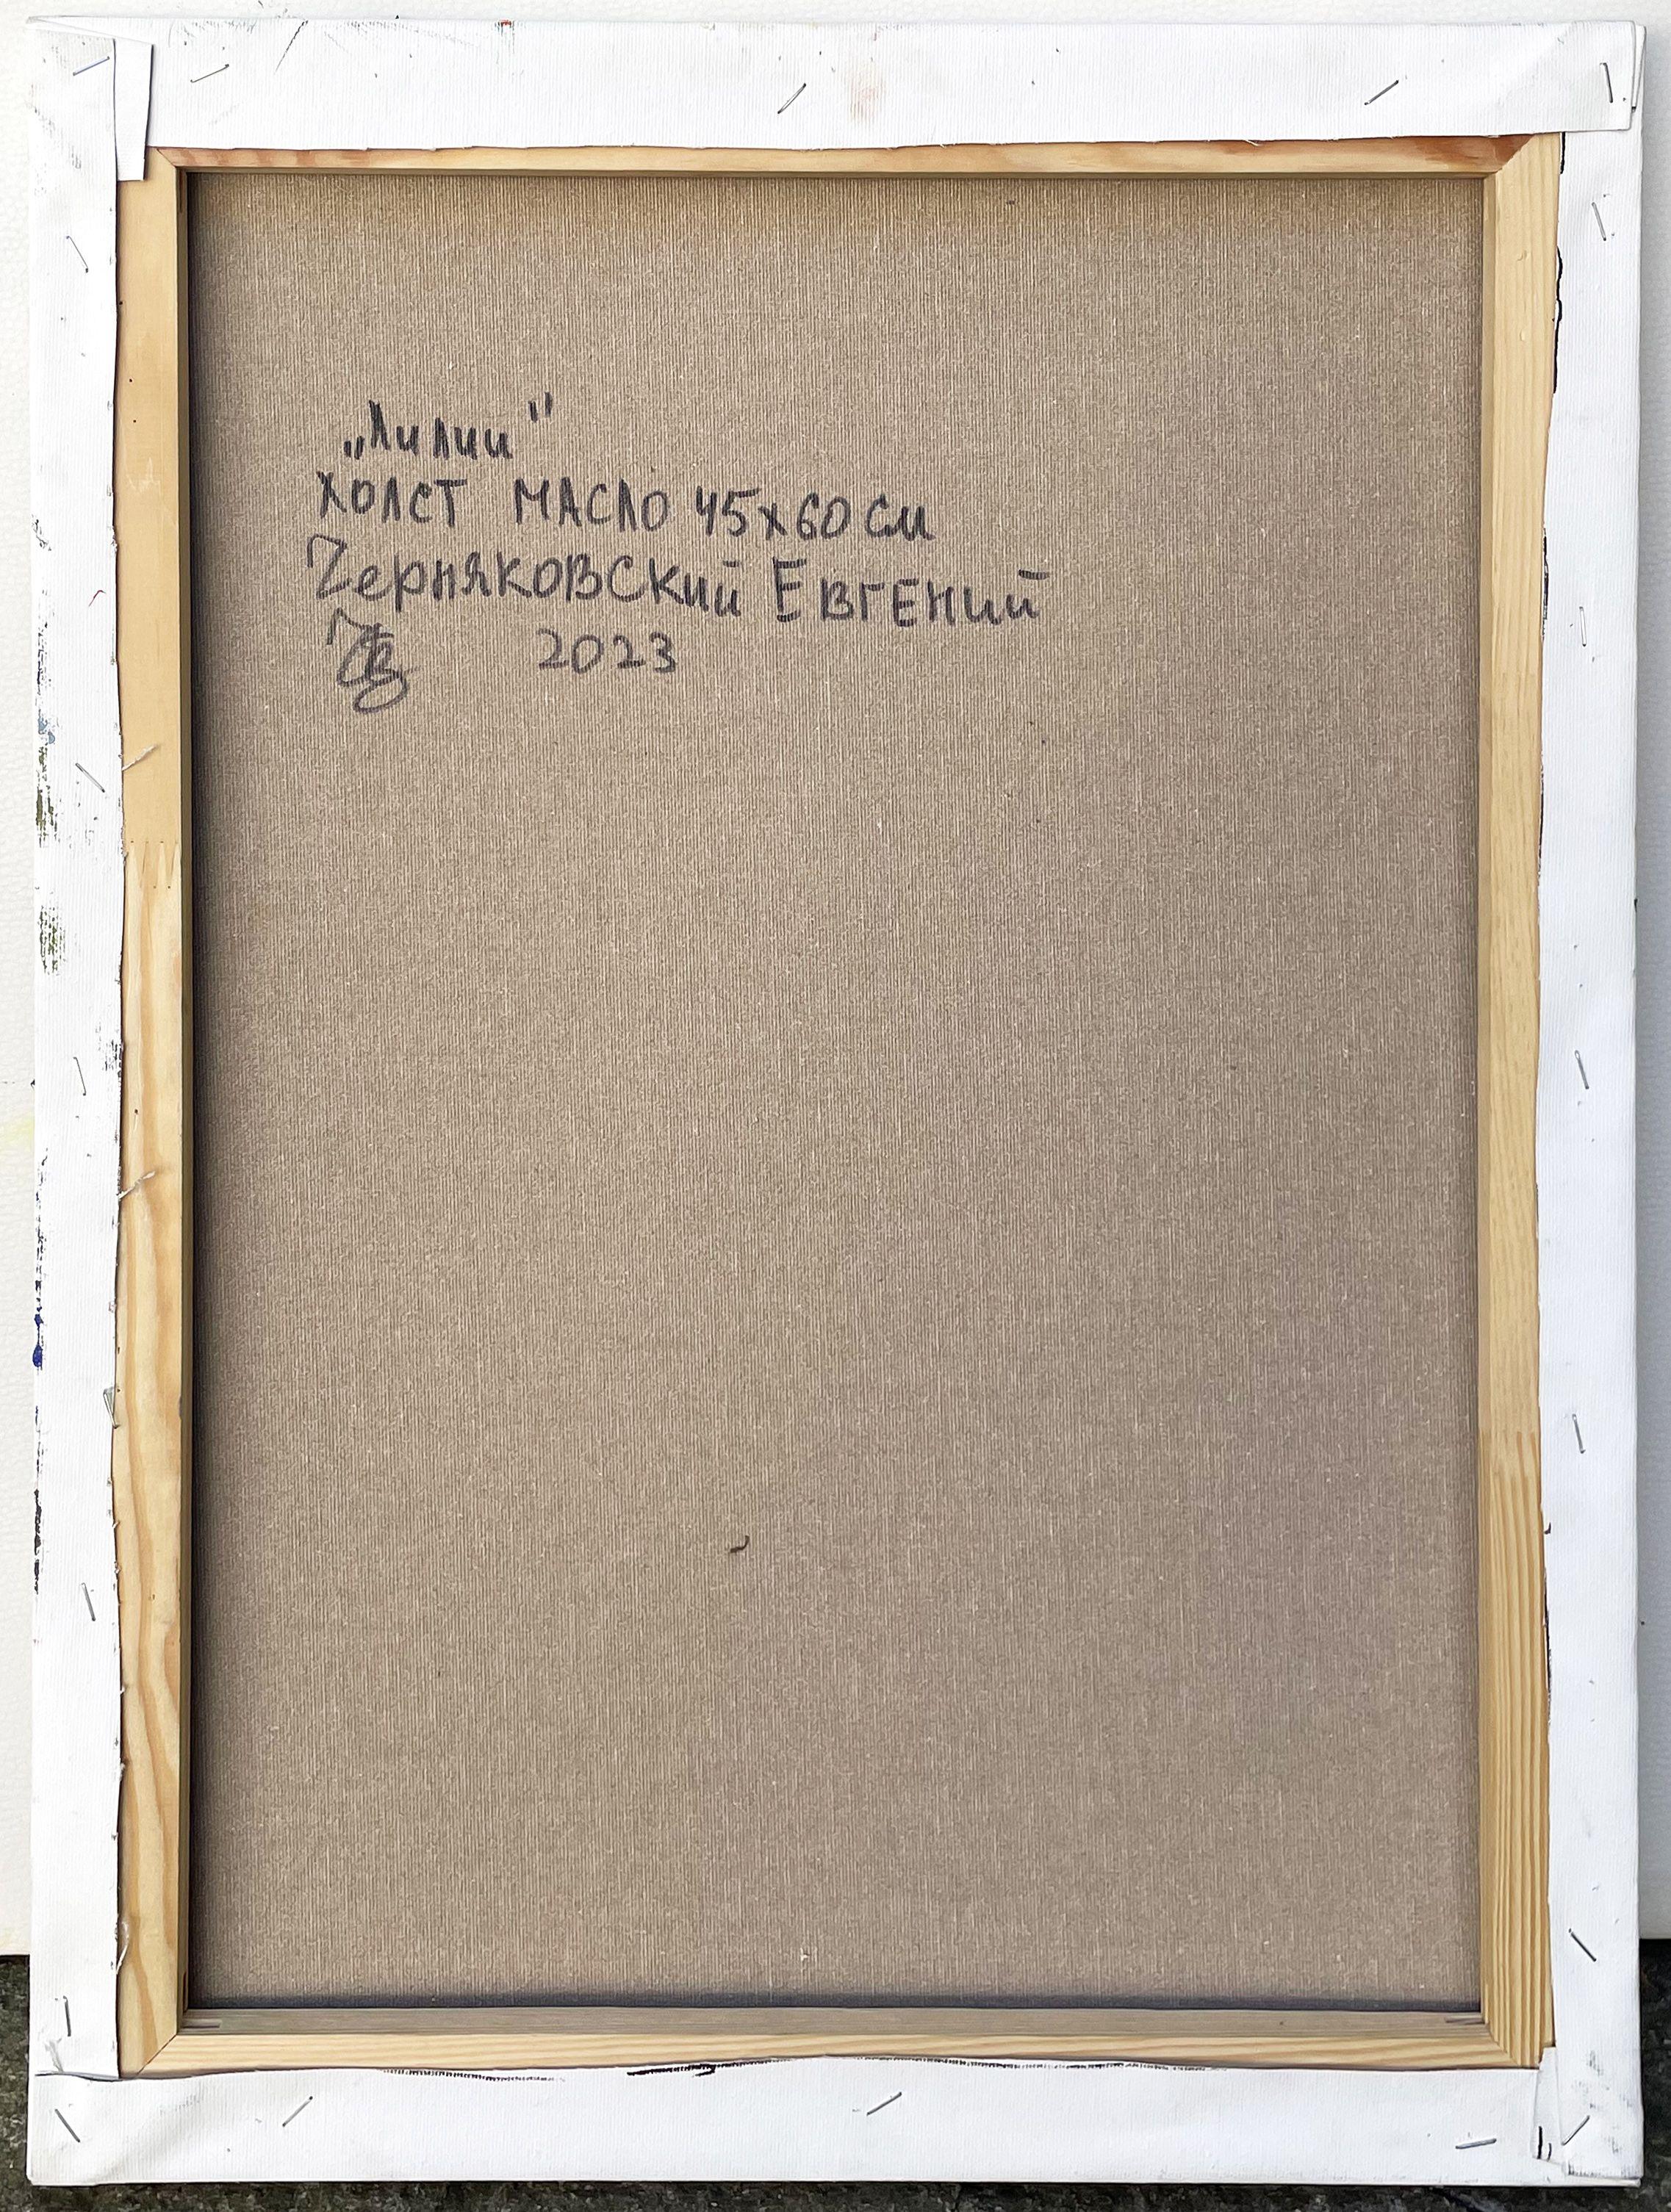 „Лилии"
ХОЛСТ МАСЛО 45х60 см
Черняковский Евгений
2023